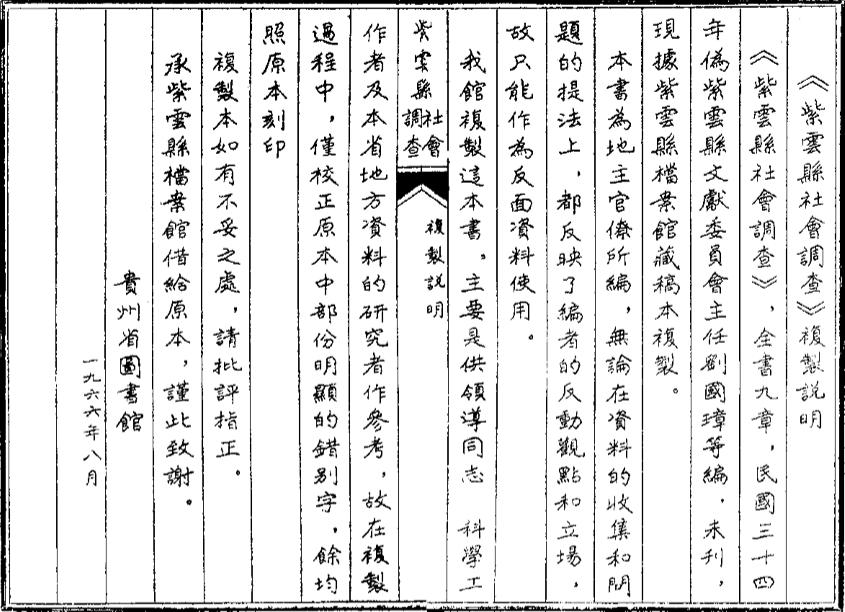 《紫雲縣社會調查》複製説明
《紫雲縣社會調查》，全書九章，民國三十四
年偽紫雲縣文獻委員會主任劉國璋等編，未刋，
現據紫雲縣檔案館藏稿本複製。
本書為地主官僚所編，無論在資料的收集和問
題的提法上，都反映了編者的反動觀點和立場，
故只能作為反面資料使用。
我館複製這本書，主要是供領導同志 科學工
紫雲縣社會調查
複製説明
作者及本省地方資料的研究者作參考，故在複製
過程中，僅校正原本中部份明顯的錯别字，餘均
照原本刻印
複製本如有不妥之處，請批評指正。
承紫雲縣檔案館借給原本，謹此致謝。
貴州省圖書館
一九六六年八月